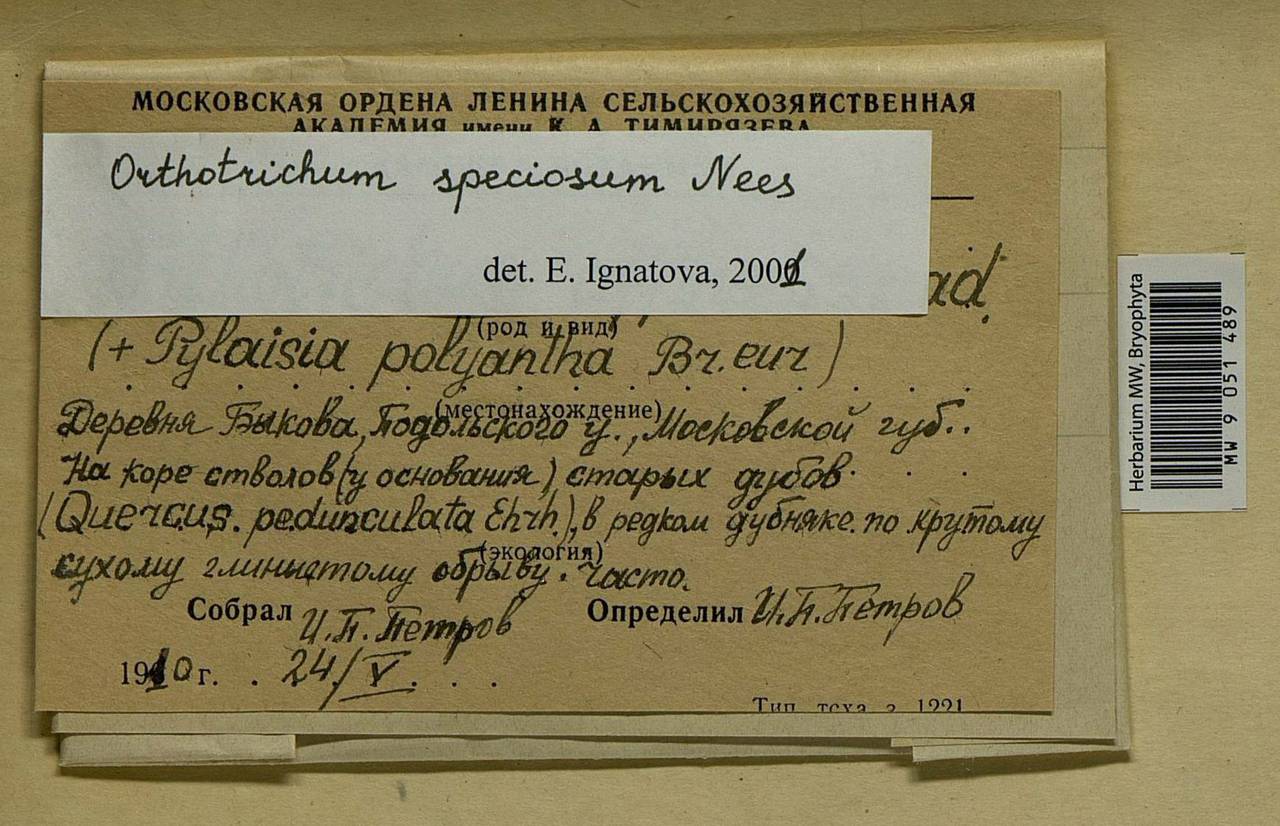 МОСКОВСКАЯ ОРДЕНА ЛЕНИНА СЕЛЬСКОХОЗЯЙСТВЕННАЯ
АКАДЕМИЯ имени К. А. ТИМИРЯЗЕВА
Orthotrichum speciosum Nees
det. E. Ignatova, 2001
ad.
(род и вид)
(+ Pylaisia polyantha Br. eur)
(местонахождение)
Деревня Быкова, Подольского у., Московской губ.
На коре стволов (у основания) старых дубов
(Quercus pedunculata Ehrh.), в редком дубняке по крутому
(экология)
сухому глинистому обрыву. Часто.
Собрал И.П. Петров Определил И.П. Петров
1910 г. 24/V
Тип. тсха з. 1221
Herbarium MW, Bryophyta
MW 9 051 489